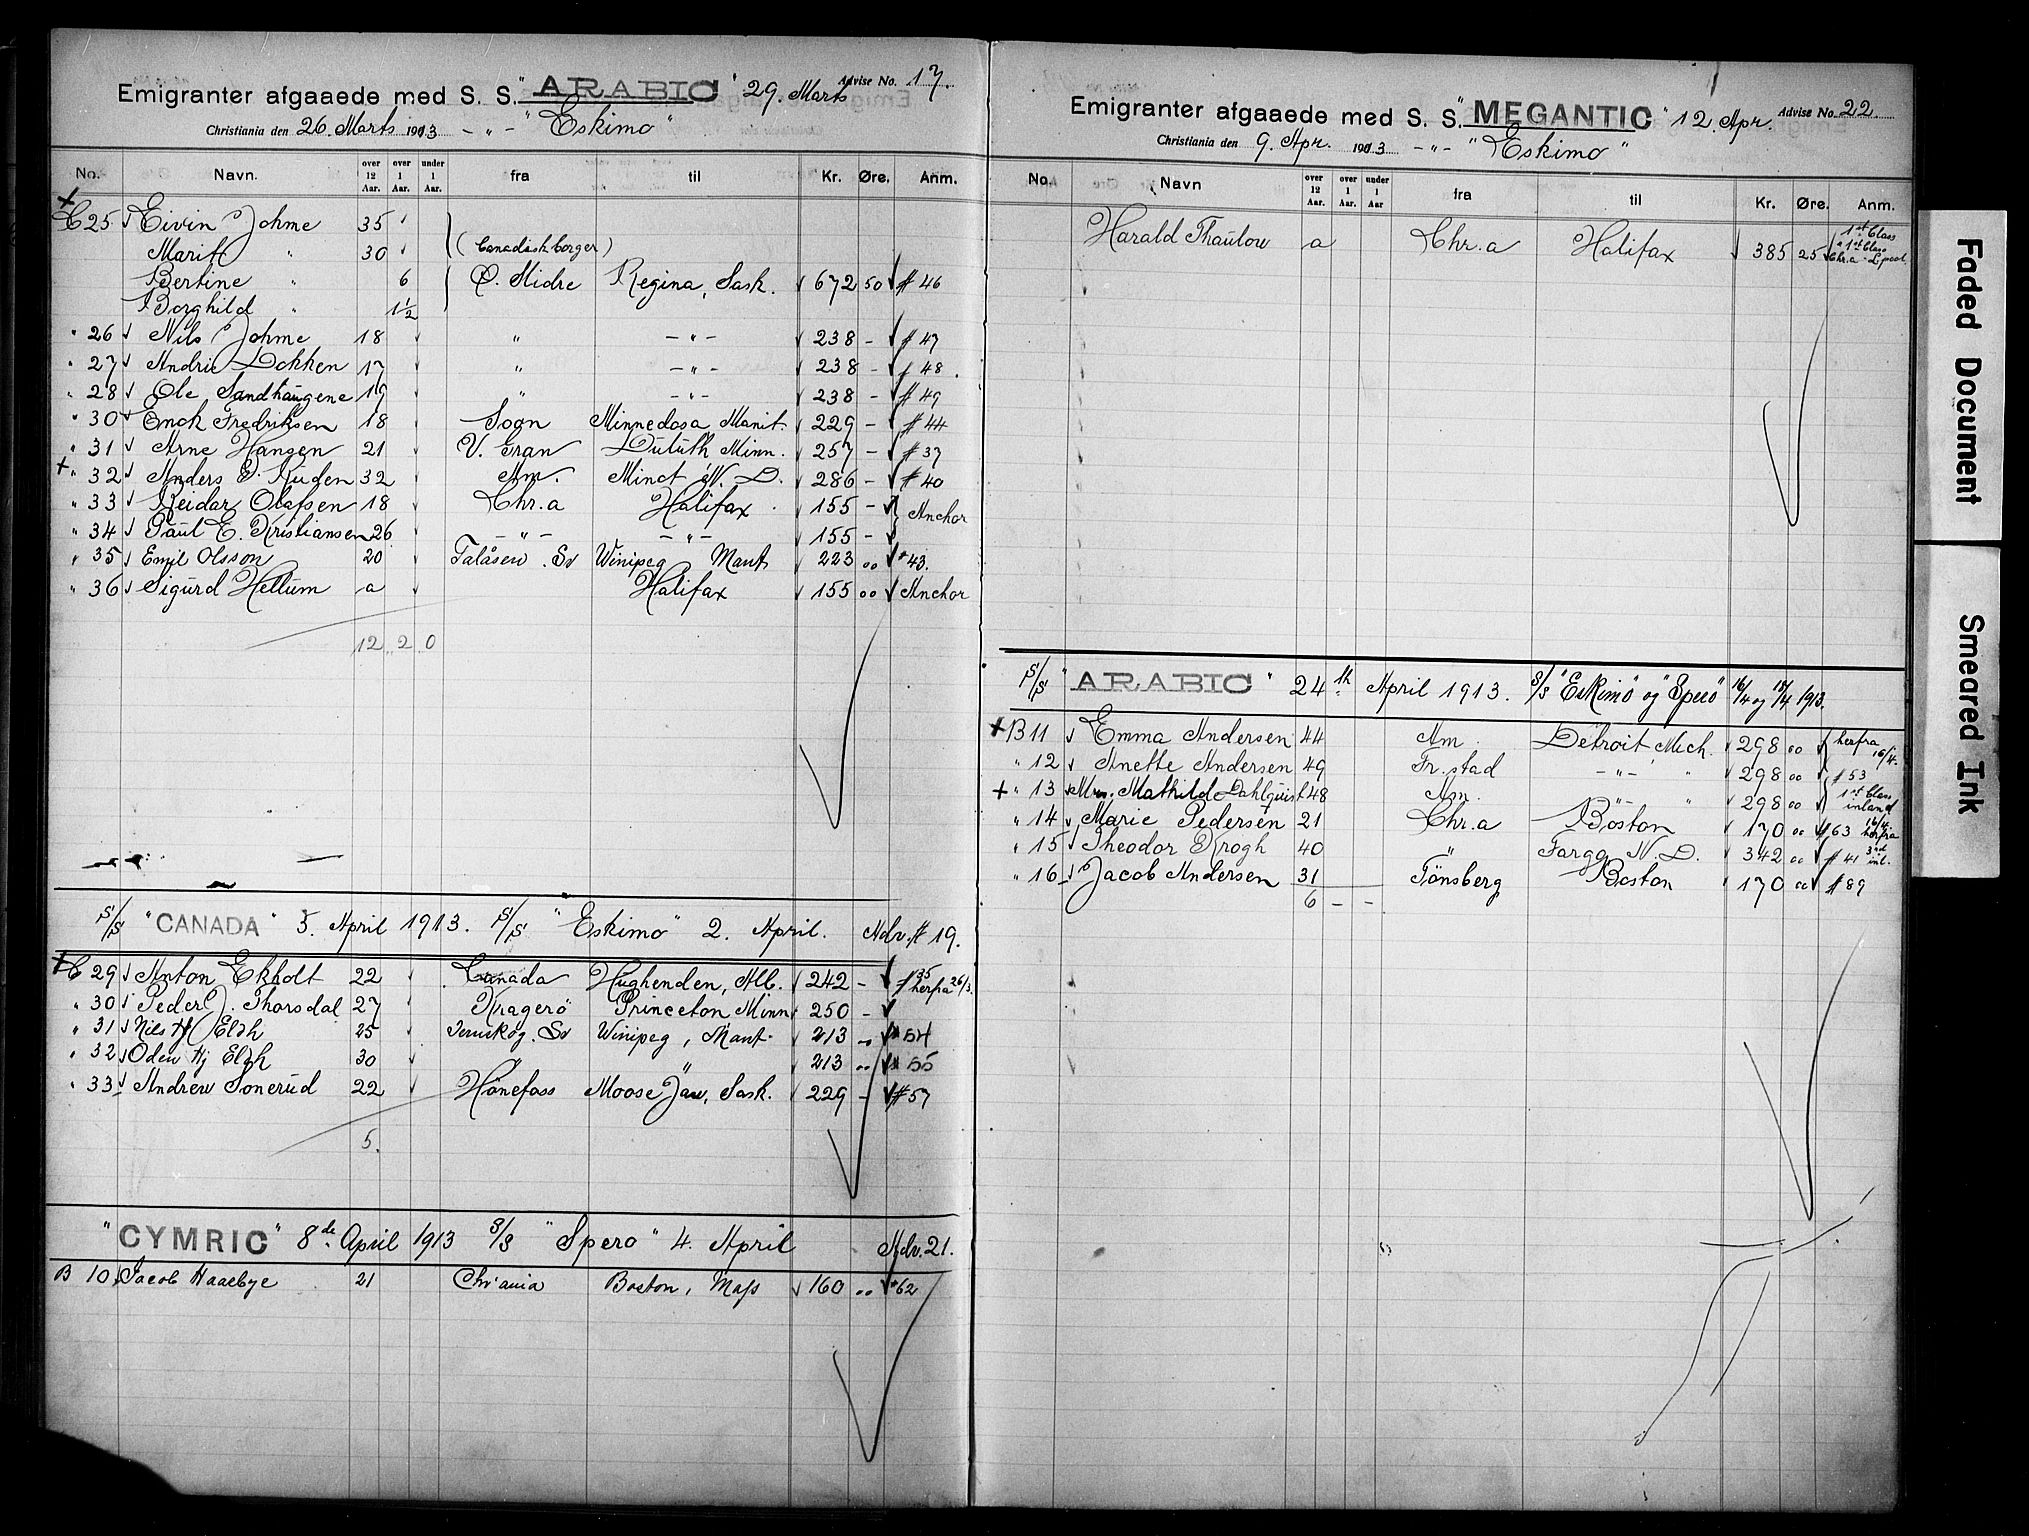 Emigranter afgaaede med S. S. "ARABIC" 29. Marts Advise No. 17.
Christiania den 26. Marts 1913 - " - "Eskimo"
No. Navn. over 12 Aar. over 1 Aar. under 1 Aar. fra til Kr. Øre. Anm.
C 25 Eivin Johme 35
Marit " 30 (Canadisk borger)
Bertine " 6 Ø. Slidre Regina, Sask. 672 50 # 46
Borghild " 1½
" 26 Nils Johme 18 " - " - 238 - # 47
" 27 Andrie Lokken 17 " - " - 238 - # 48
" 28 Ole Sandhaugene 19 " - " - 238 - # 49
" 30 Enok Fredriksen 18 Sogn Minnedosa Manit. 229 - # 44
" 31 Arne Hansen 21 V. Gran Duluth Minn. 257 - # 37
" 32 Anders E. Ruden 32 Am. Minot N. D. 286 - # 40
" 33 Reidar Olafsen 18 Chr.a Halifax 155 - Anchor
" 34 Paul E. Kristiansen 26 - " - - " - 155 -
" 35 Emil Olsson 20 Talåsen. Sv Winipeg Mant 223 00 # 43.
" 36 Sigurd Hellum a Halifax 155 00 Anchor
12 2 0
S/S "CANADA" 5. April 1913. S/S "Eskimo" 2. April. Adv. # 19.
C 29 Anton Ekholt 22 Canada Hughenden, Alb. 242 - # 35 herfra 26/3.
" 30 Peder J. Thorsdal 27 Kragerö Princeton Minn 250 -
" 31 Nils Hj Elgh 25 Winipeg, Mant. 213 " # 54
" 32 Oden Hj Elgh 30 " " 213 " # 55
" 33 Andrew Sonerud 22 Hönefoss Moose Jaw, Sask. 229 - # 57
5.
"CYMRIC" 8de April 1913 S/S "Spero" 4. April Adv. 21.
B 10 Jacob Haaebye 21 Chr'ania Boston, Mass 160 00 # 62
Emigranter afgaaede med S. S. "MEGANTIC" 12. Apr. Advise No. 22
Christiania den 9. Apr. 1913 - " - "Eskimo"
No. Navn over 12 Aar. over 1 Aar. under 1 Aar fra til Kr. Øre. Anm.
Harald Thaulow a Chr.a Halifax 385 25 1st Class " 1st Class Chr.a - L'pool
S/S "ARABIC" 24th April 1913. S/S "Eskimo" og "Spero" 16/4 og 18/4 1913.
B 11 Emma Andersen 44 Am Detroit Mich. 298 00 herfra 16/4.
" 12 Anette Andersen 49 Fr.stad - " - " 298 00 # 53
" 13 Mrs. Mathild Dahlquist 48 Am. - " - " 298 00 1st Class inland
" 14 Marie Pedersen 21 Chr.a Boston 170 00 # 63 16/4 herfra
" 15 Theodor Krogh 40 " Fargo N. D. 342 00 # 41 3rd inl.
" 16 Jacob Andersen 31 Tönsberg Boston 170 00 # 89
6 - -
Faded Document
Smeared Ink